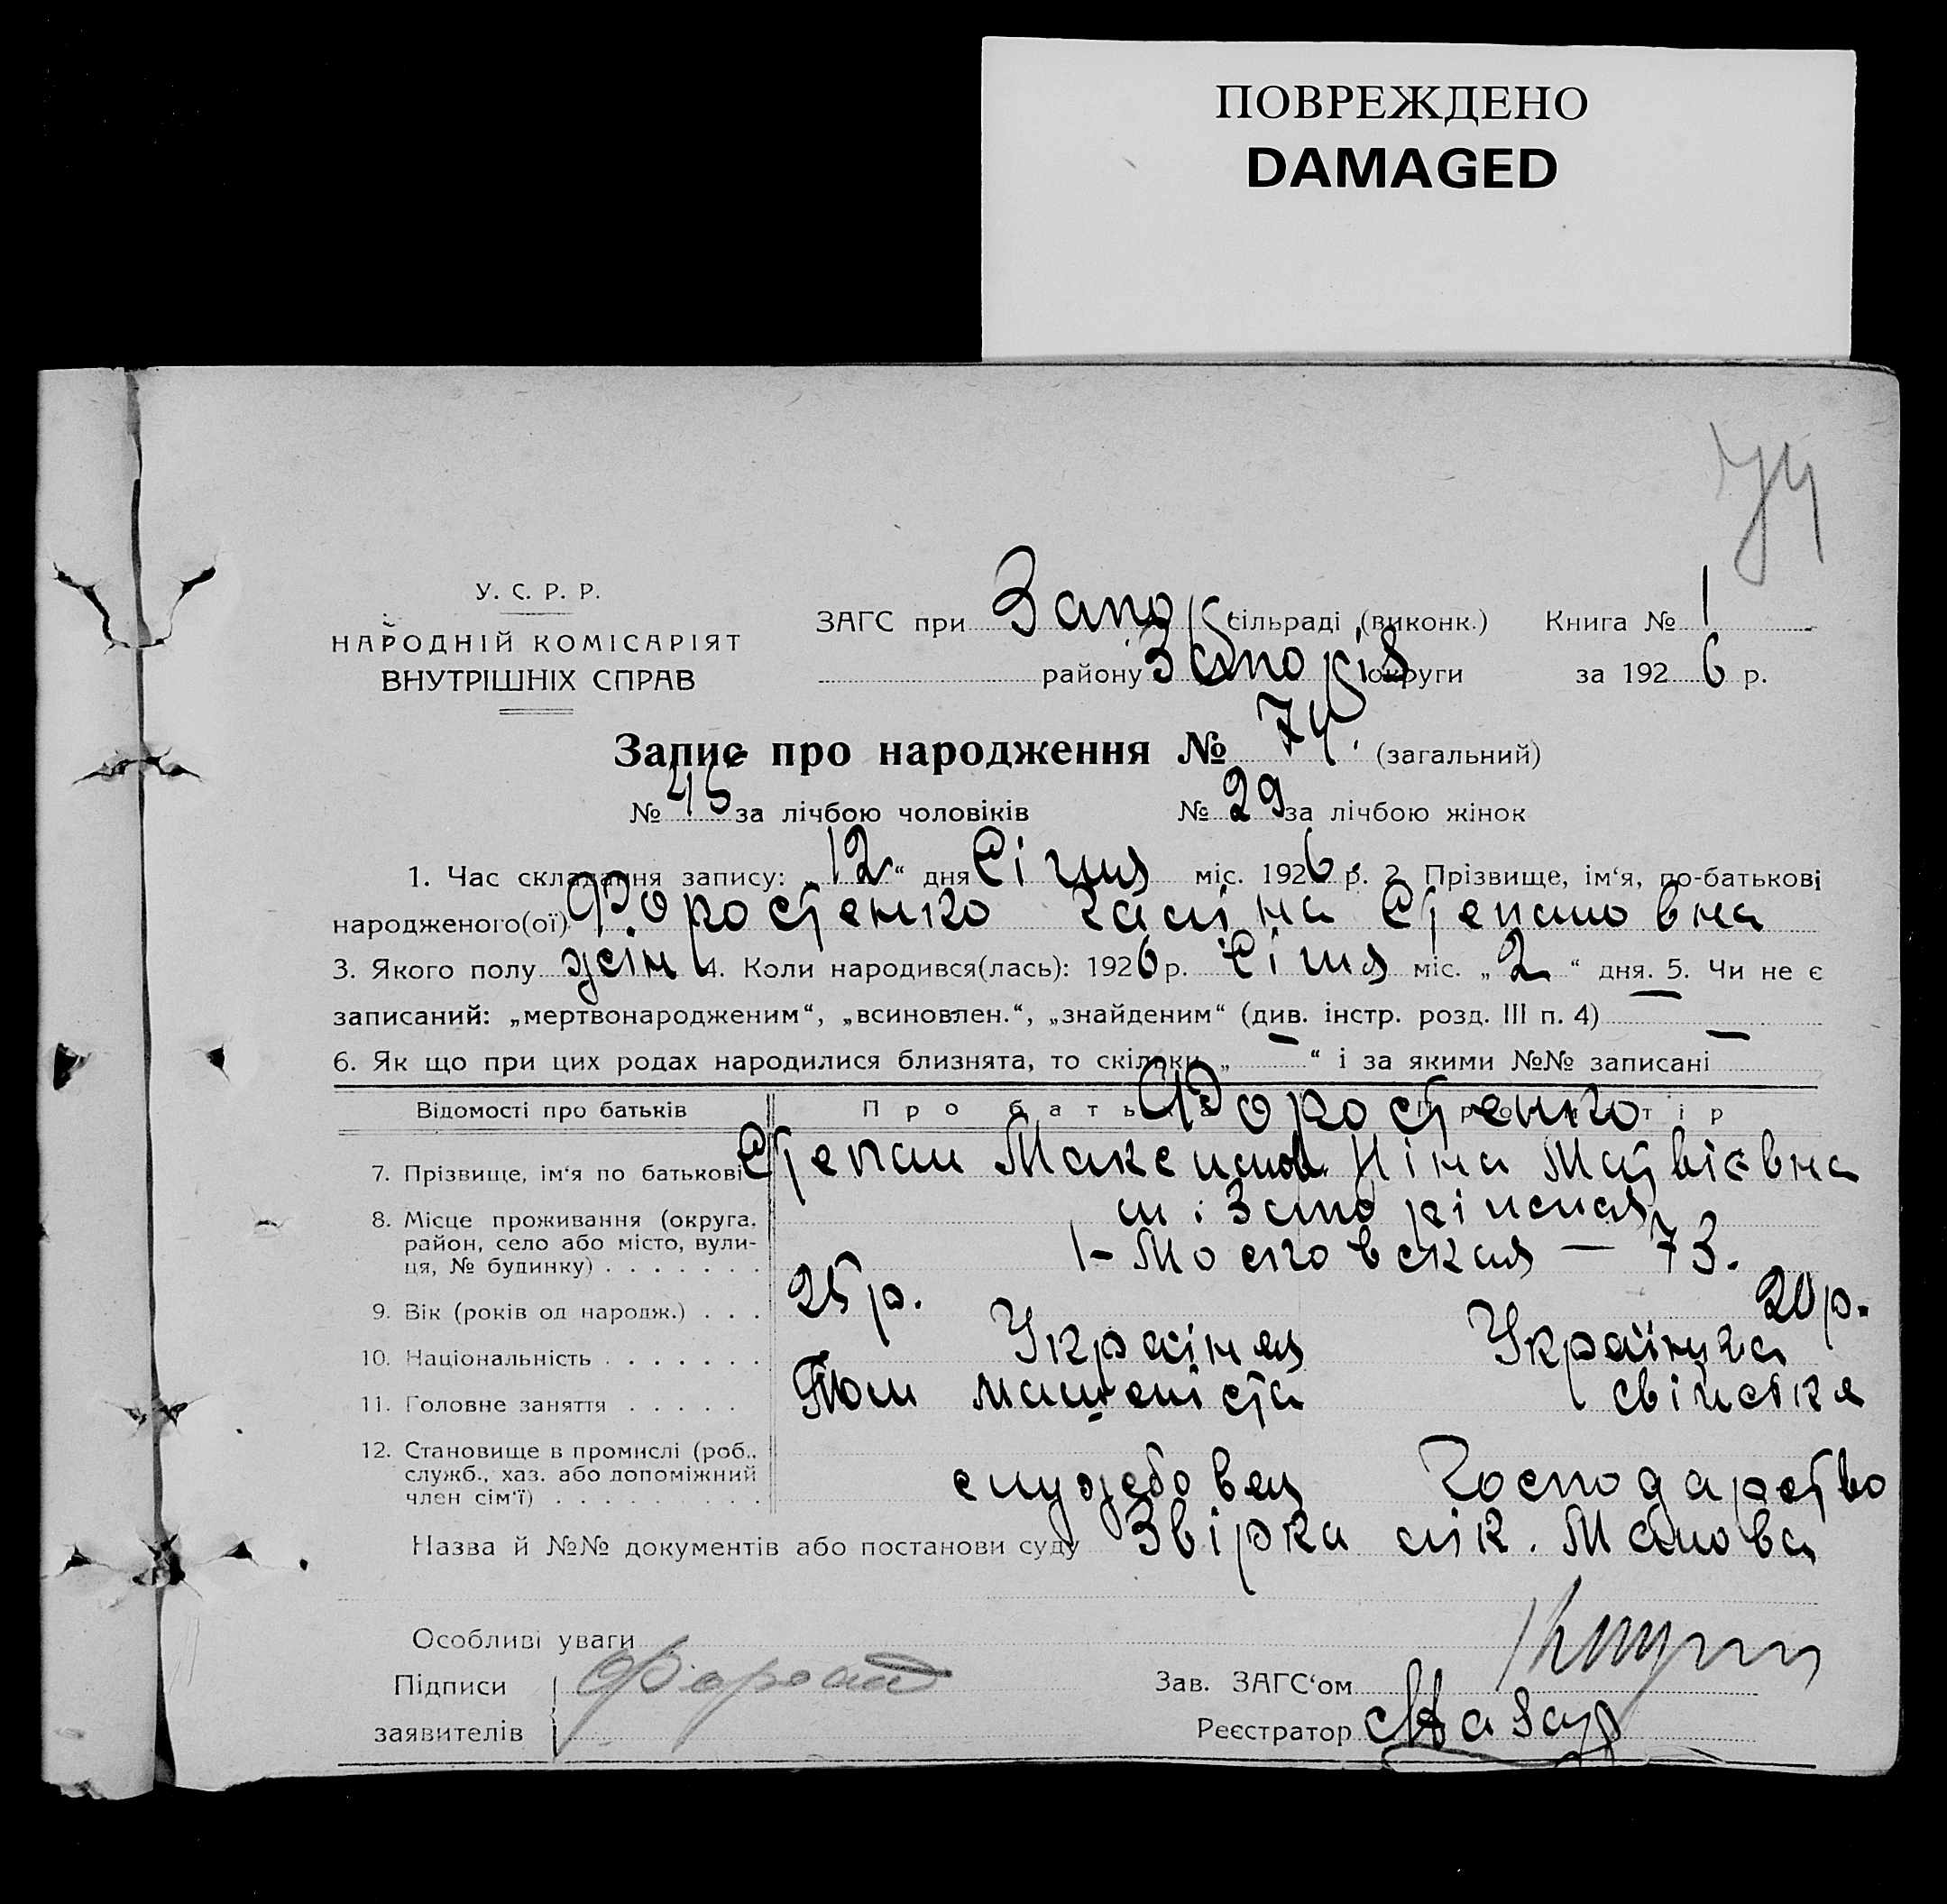 ПОВРЕЖДЕНО
DAMAGED
74
У. С. Р. Р.
НАРОДНІЙ КОМІСАРІЯТ
ВНУТРІШНІХ СПРАВ
ЗАГС при Запок сільраді (виконк.) Книга № 1
району Запоріз округи за 1926 р.
Запис про народження № 74. (загальний)
№ 45 за лічбою чоловіків № 29 за лічбою жінок
1. Час складання запису: „12“ дня Січня міс. 1926 р. 2. Прізвище, ім‘я, по-батькові
народженого(ої) Форостенко Галіна Степановна
3. Якого полу жін 4. Коли народився(лась): 1926 р. Січня міс. „2“ дня. 5. Чи не є
записаний: „мертвонародженим“, „всиновлен.“, „знайденим“ (див. інстр. розд. III п. 4) —
6. Як що при цих родах народилися близнята, то скільки „—“ і за якими №№ записані —
Відомості про батьків Про батька Про матір
Форостенко
7. Прізвище, ім‘я по батькові Степан Максимов Ніна Матвієвна
8. Місце проживання (округа, район, село або місто, вулиця, № будинку) . . . . . . .
м. Запоріжжя
1-Московская — 73.
9. Вік (років од народж.) . . . 25 р. 20 р.
10. Національність . . . . . . . Українец Українка
11. Головне заняття . . . . . Пом машиніста свійське
12. Становище в промислі (роб., служб., хаз. або допоміжний член сім‘ї) . . . . . . . . .
службовец Господарство
Назва й №№ документів або постанови суду Звірка лік. Манова
Особливі уваги
Підписи
заявителів
Зав. ЗАГС‘ом
Реєстратор Мазур